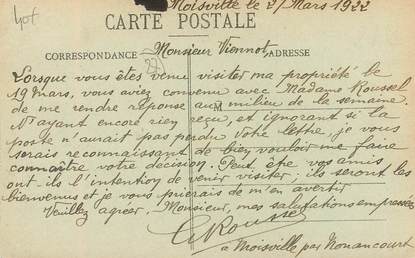 Moisville le 21 Mars 1922
CARTE POSTALE
CORRESPONDANCE Monsieur Viennot ADRESSE
Lorsque vous êtes venu visiter ma propriété le
19 Mars, vous aviez convenu avec Madame Roussel
de me rendre réponse au milieu de la semaine.
N'ayant encore rien reçu, et ignorant si la
poste n'aurait pas perdu votre lettre, je vous
serais reconnaissant de bien vouloir me faire
connaître votre décision. Peut être vos amis
ont-ils l'intention de venir visiter; ils seront les
bienvenus et je vous prierais de m'en avertir
Veuillez agréer, Monsieur, mes salutations empressées
Roussel
à Moisville par Nonancourt